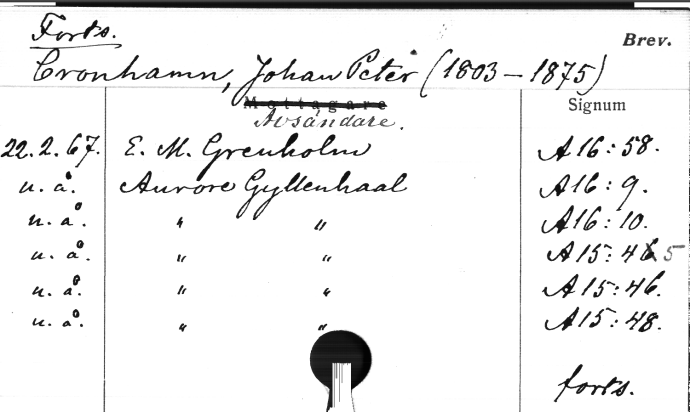 Forts.
Brev.
Cronhamn, Johan Peter (1803 – 1875)
Mottagare
Signum
Avsändare.
22.2.67. E. M. Grenholm A16:58.
u. å. Aurore Gyllenhaal A16:9.
u. å. " " A16:10.
u. å. " " A15:46 5
u. å. " " A15:46.
u. å. " " A15:48.
forts.